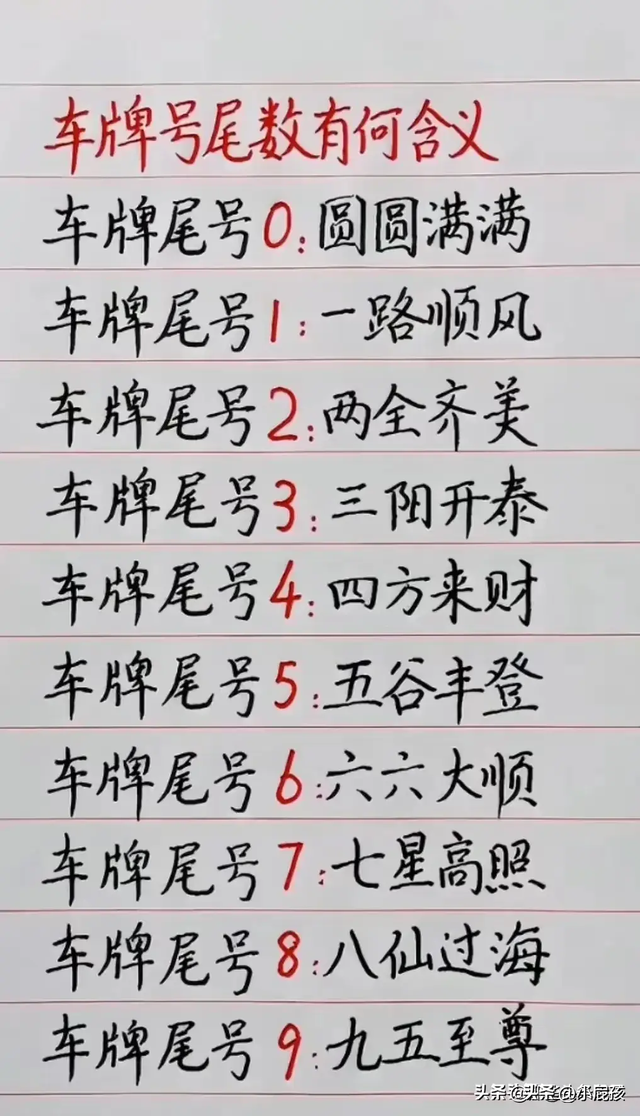 车牌号尾数有何含义
车牌尾号0:圆圆满满
车牌尾号1:一路顺风
车牌尾号2:两全齐美
车牌尾号3:三阳开泰
车牌尾号4:四方来财
车牌尾号5:五谷丰登
车牌尾号6:六六大顺
车牌尾号7:七星高照
车牌尾号8:八仙过海
车牌尾号9:九五至尊
头条 @小屁孩